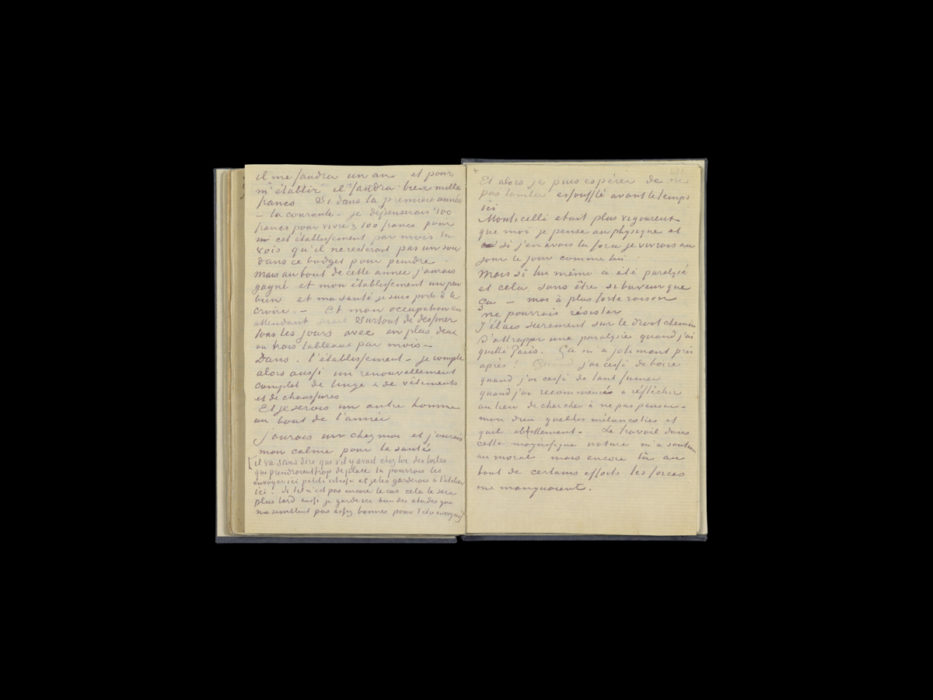 il me faudra un an et pour
m'établir il faudra bien mille
francs. Si dans la première année
– la courante – je dépenserais 100
francs pour vivre & 100 francs pour
cet établissement par mois tu
vois qu'il ne resterait pas un sou
dans ce budget pour peindre.
Mais au bout de cette année j'aurais
gagné et mon établissement un peu
bien et ma santé je suis porté à le
croire. – Et mon occupation en
attendant serait surtout de dessiner
tous les jours avec en plus deux
ou trois tableaux par mois. –
Dans l'établissement je compte
alors aussi un renouvellement
complet de linge & de vêtements
et de chaussures
Et je serais un autre homme
au bout de l'année
J'aurais un chez moi et j'aurais
mon calme pour la santé
et va sans dire que s'il y avait chez toi des toiles
qui prendraient trop de place tu pourrais les
envoyer ici petite vitesse et je les garderais à l'atelier
ici. Si tel n'est pas encore le cas cela le sera
plus tard aussi je garderai bien des études qui
ne semblent pas assez bonnes pour t'être envoyées
Et alors je puis espérer de ne
pas tomber essoufflé avant le temps
ici
Monticelli etait plus vigoureux
que moi je pense au physique et
si j'en avais la force je vivrais au
jour le jour comme lui
Mais si lui même a été paralysé
et cela sans être si buveur que
ça – moi à plus forte raison
ne pourrais résister
J'étais surement sur le droit chemin
d'attrapper une paralysie quand j'ai
quitté Paris. Ça m'a joliment pris
après! Quand j'ai cessé de boire
quand j'ai cessé de tant fumer
quand j'ai recommencé à réfléchir
au lieu de chercher à ne pas penser –
mon dieu quelles mélancolies et
quel abattement. Le travail dans
cette magnifique nature m'a soutenu
au moral mais encore là au
bout de certains efforts les forces
me manquaient.